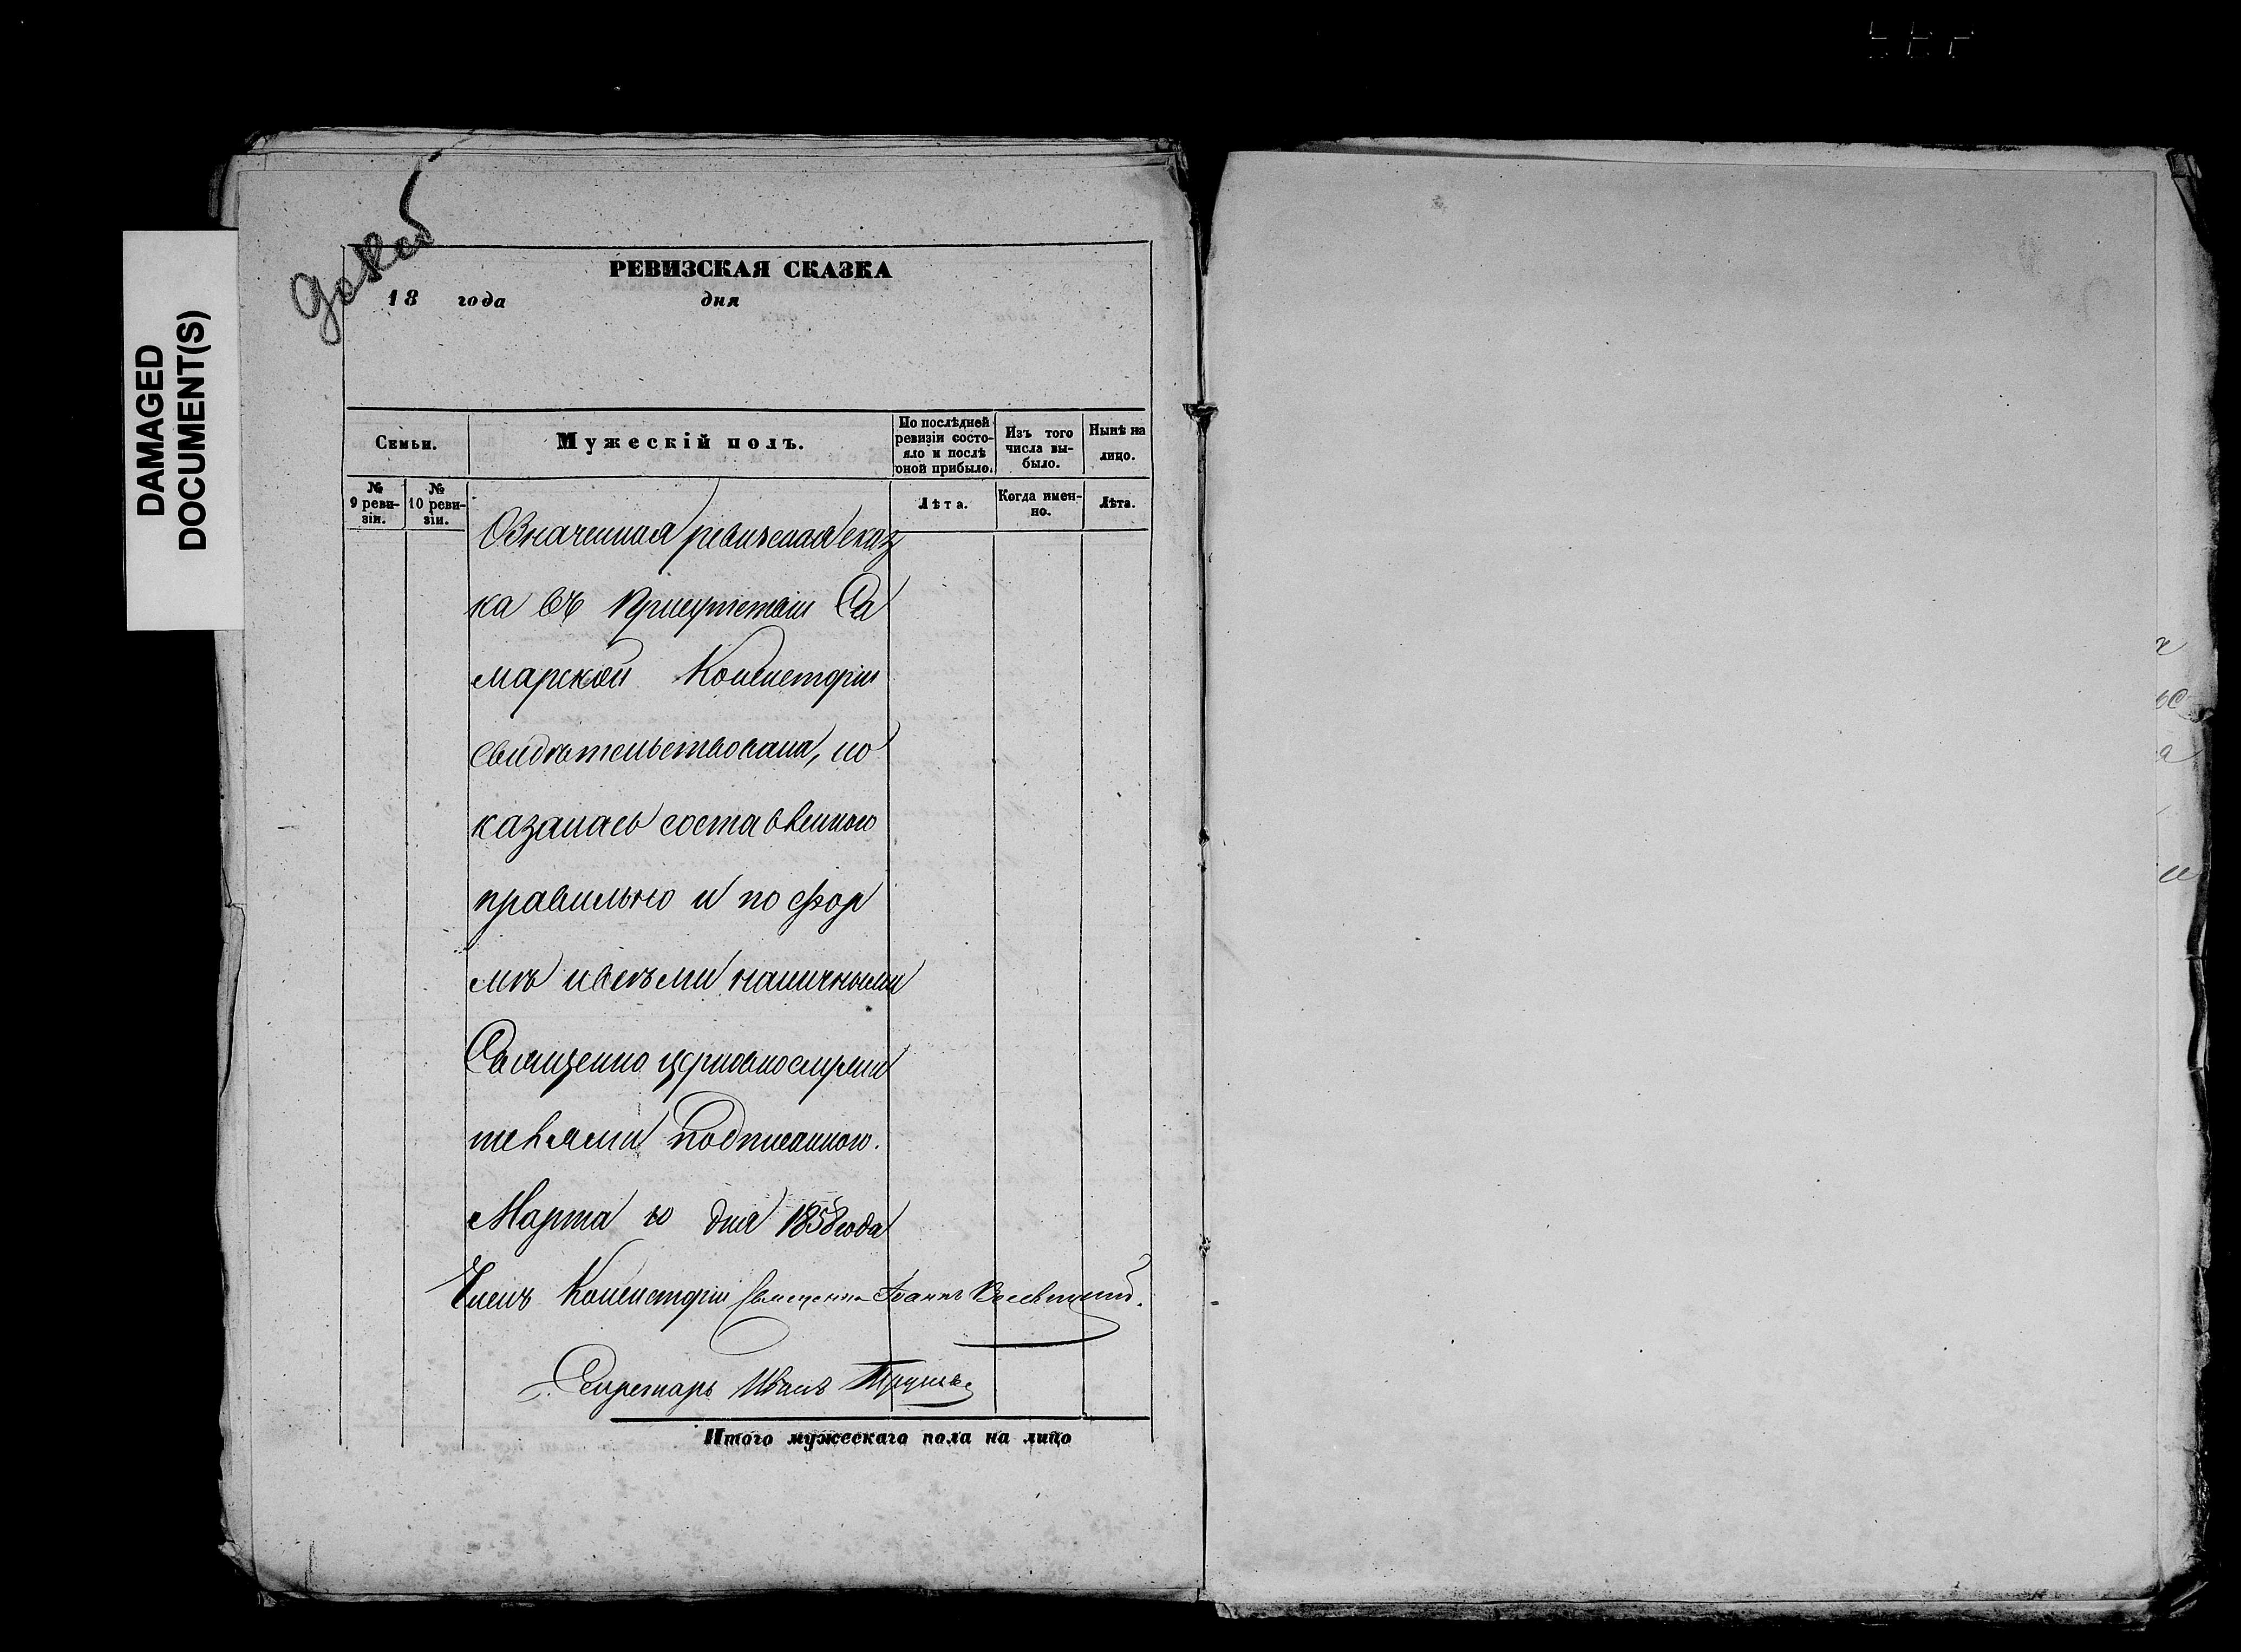 DAMAGED
DOCUMENT(S)
РЕВИЗСКАЯ СКАЗКА
18 года дня
Семьи.
Мужескій полъ.
По послѣдней ревизіи состояло и послѣ оной прибыло.
Изъ того числа выбыло.
Нынѣ на лицо.
№ 9 ревизіи.
№ 10 ревизіи.
Лѣта.
Когда именно.
Лѣта.
Означенная ревизская сказ
ка въ присутствіи Са
марской Консисторіи
свидѣтельствована, по
казалась составленною
правильно и по фор
мѣ и всѣми наличными
Священно церковнослужи
телями подписанною.
Марта 10 дня 1858 года
Членъ Консисторіи Священникъ Іоаннъ
Секретарь Иванъ
Итого мужескаго пола на лицо